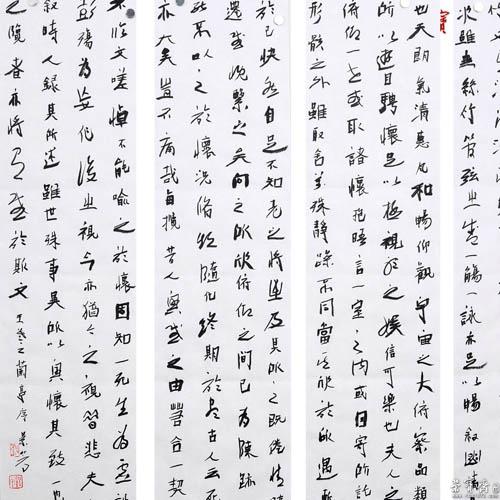 次雖無絲竹管弦之盛一觴一詠亦足以暢敘幽情
也天朗氣清惠風和暢仰觀宇宙之大俯察品類
所以遊目騁懷足以極視聽之娛信可樂也夫人之
俯仰一世或取諸懷抱晤言一室之內或因寄所託
形骸之外雖取舍萬殊靜躁不同當其欣於所遇暫
於己快然自足不知老之將至及其所之既倦情隨
遷感慨繫之矣向之所欣俯仰之間已為陳跡
不以之於懷況脩短隨化終期於盡古人云
亦大矣豈不痛哉每攬昔人興感之由若合一契
不臨文嗟悼不能喻之於懷固知一死生為虛
彭殤為妄作後之視今亦猶今之視昔悲夫
敘時人錄其所述雖世殊事異所以興懷其致也
之覽者亦將有感於斯文 王羲之蘭亭序